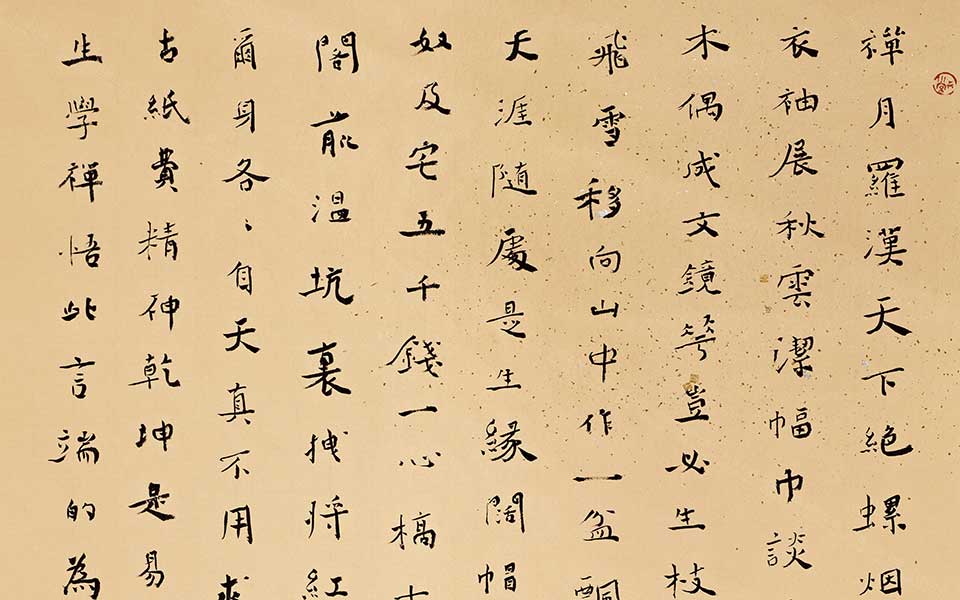 禪月羅漢天下絕螺烟
衣袖展秋雲潔幅巾談
木偶成文鏡豈必生枝
飛雪移向山中作一盆
天涯隨處是生緣闊帽
奴及宅五千錢一心槁
閤前溫坑裏拽將紅
爾身各〻自天真不用求
古紙費精神乾坤是易
生學禪悟此言端的為